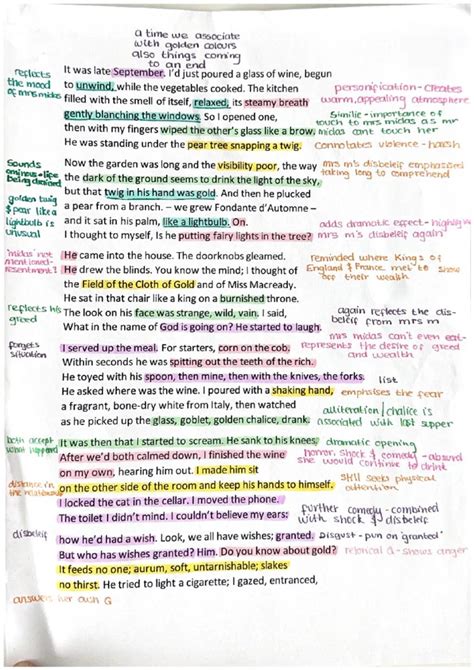 a time we associate
with golden colours
also things coming
to an end
reflects
the mood
of mrs midas
It was late September. I'd just poured a glass of wine, begun
to unwind, while the vegetables cooked. The kitchen
filled with the smell of itself, relaxed, its steamy breath
gently blanching the windows. So I opened one,
then with my fingers wiped the other's glass like a brow.
He was standing under the pear tree snapping a twig.
personification - creates
warm, appealing atmosphere
Similie - importance of
touch to mrs midas as mr
midas cant touch her
Connotates violence - harsh
Sounds
ominous + life
being drained
golden twig
& pear like
lightbulb is
unusual
Now the garden was long and the visibility poor, the way
the dark of the ground seems to drink the light of the sky,
but that twig in his hand was gold. And then he plucked
a pear from a branch. – we grew Fondante d'Automne –
and it sat in his palm, like a lightbulb. On.
I thought to myself, Is he putting fairy lights in the tree?
mrs m's disbeleif emphasised
taking long to comprehend
adds dramatic effect - highlights
mrs m's disbeleif again
midas not
mentioned -
resentment?
He came into the house. The doorknobs gleamed.
He drew the blinds. You know the mind; I thought of
the Field of the Cloth of Gold and of Miss Macready.
He sat in that chair like a king on a burnished throne.
The look on his face was strange, wild, vain. I said,
What in the name of God is going on? He started to laugh.
reminded where Kings of
England & France met to show
their wealth
reflects his
greed
again reflects the dis-
beleif from mrs m
forgets
situation
I served up the meal. For starters, corn on the cob.
Within seconds he was spitting out the teeth of the rich.
He toyed with his spoon, then mine, then with the knives, the forks.
He asked where was the wine. I poured with a shaking hand,
a fragrant, bone-dry white from Italy, then watched
as he picked up the glass, goblet, golden chalice, drank.
mrs midas can't even eat-
represents the desire of greed
and wealth
list
emphasises the fear
alliteration / chalice is
associated with last supper
both accept
what happened
It was then that I started to scream. He sank to his knees.
After we'd both calmed down, I finished the wine
on my own, hearing him out. I made him sit
on the other side of the room and keep his hands to himself.
I locked the cat in the cellar. I moved the phone.
The toilet I didn't mind. I couldn't believe my ears:
dramatic opening
horror, shock & comedy - absurd
she would continue to drink
distance in
the
Still seeks physical
attention
further comedy - combined
with shock & disbeleif
disbeleif
how he'd had a wish. Look, we all have wishes; granted.
But who has wishes granted? Him. Do you know about gold?
It feeds no one; aurum, soft, untarnishable; slakes
no thirst. He tried to light a cigarette; I gazed, entranced,
Disgust - pun on 'granted'
retorical Q - shows anger
answers her own Q